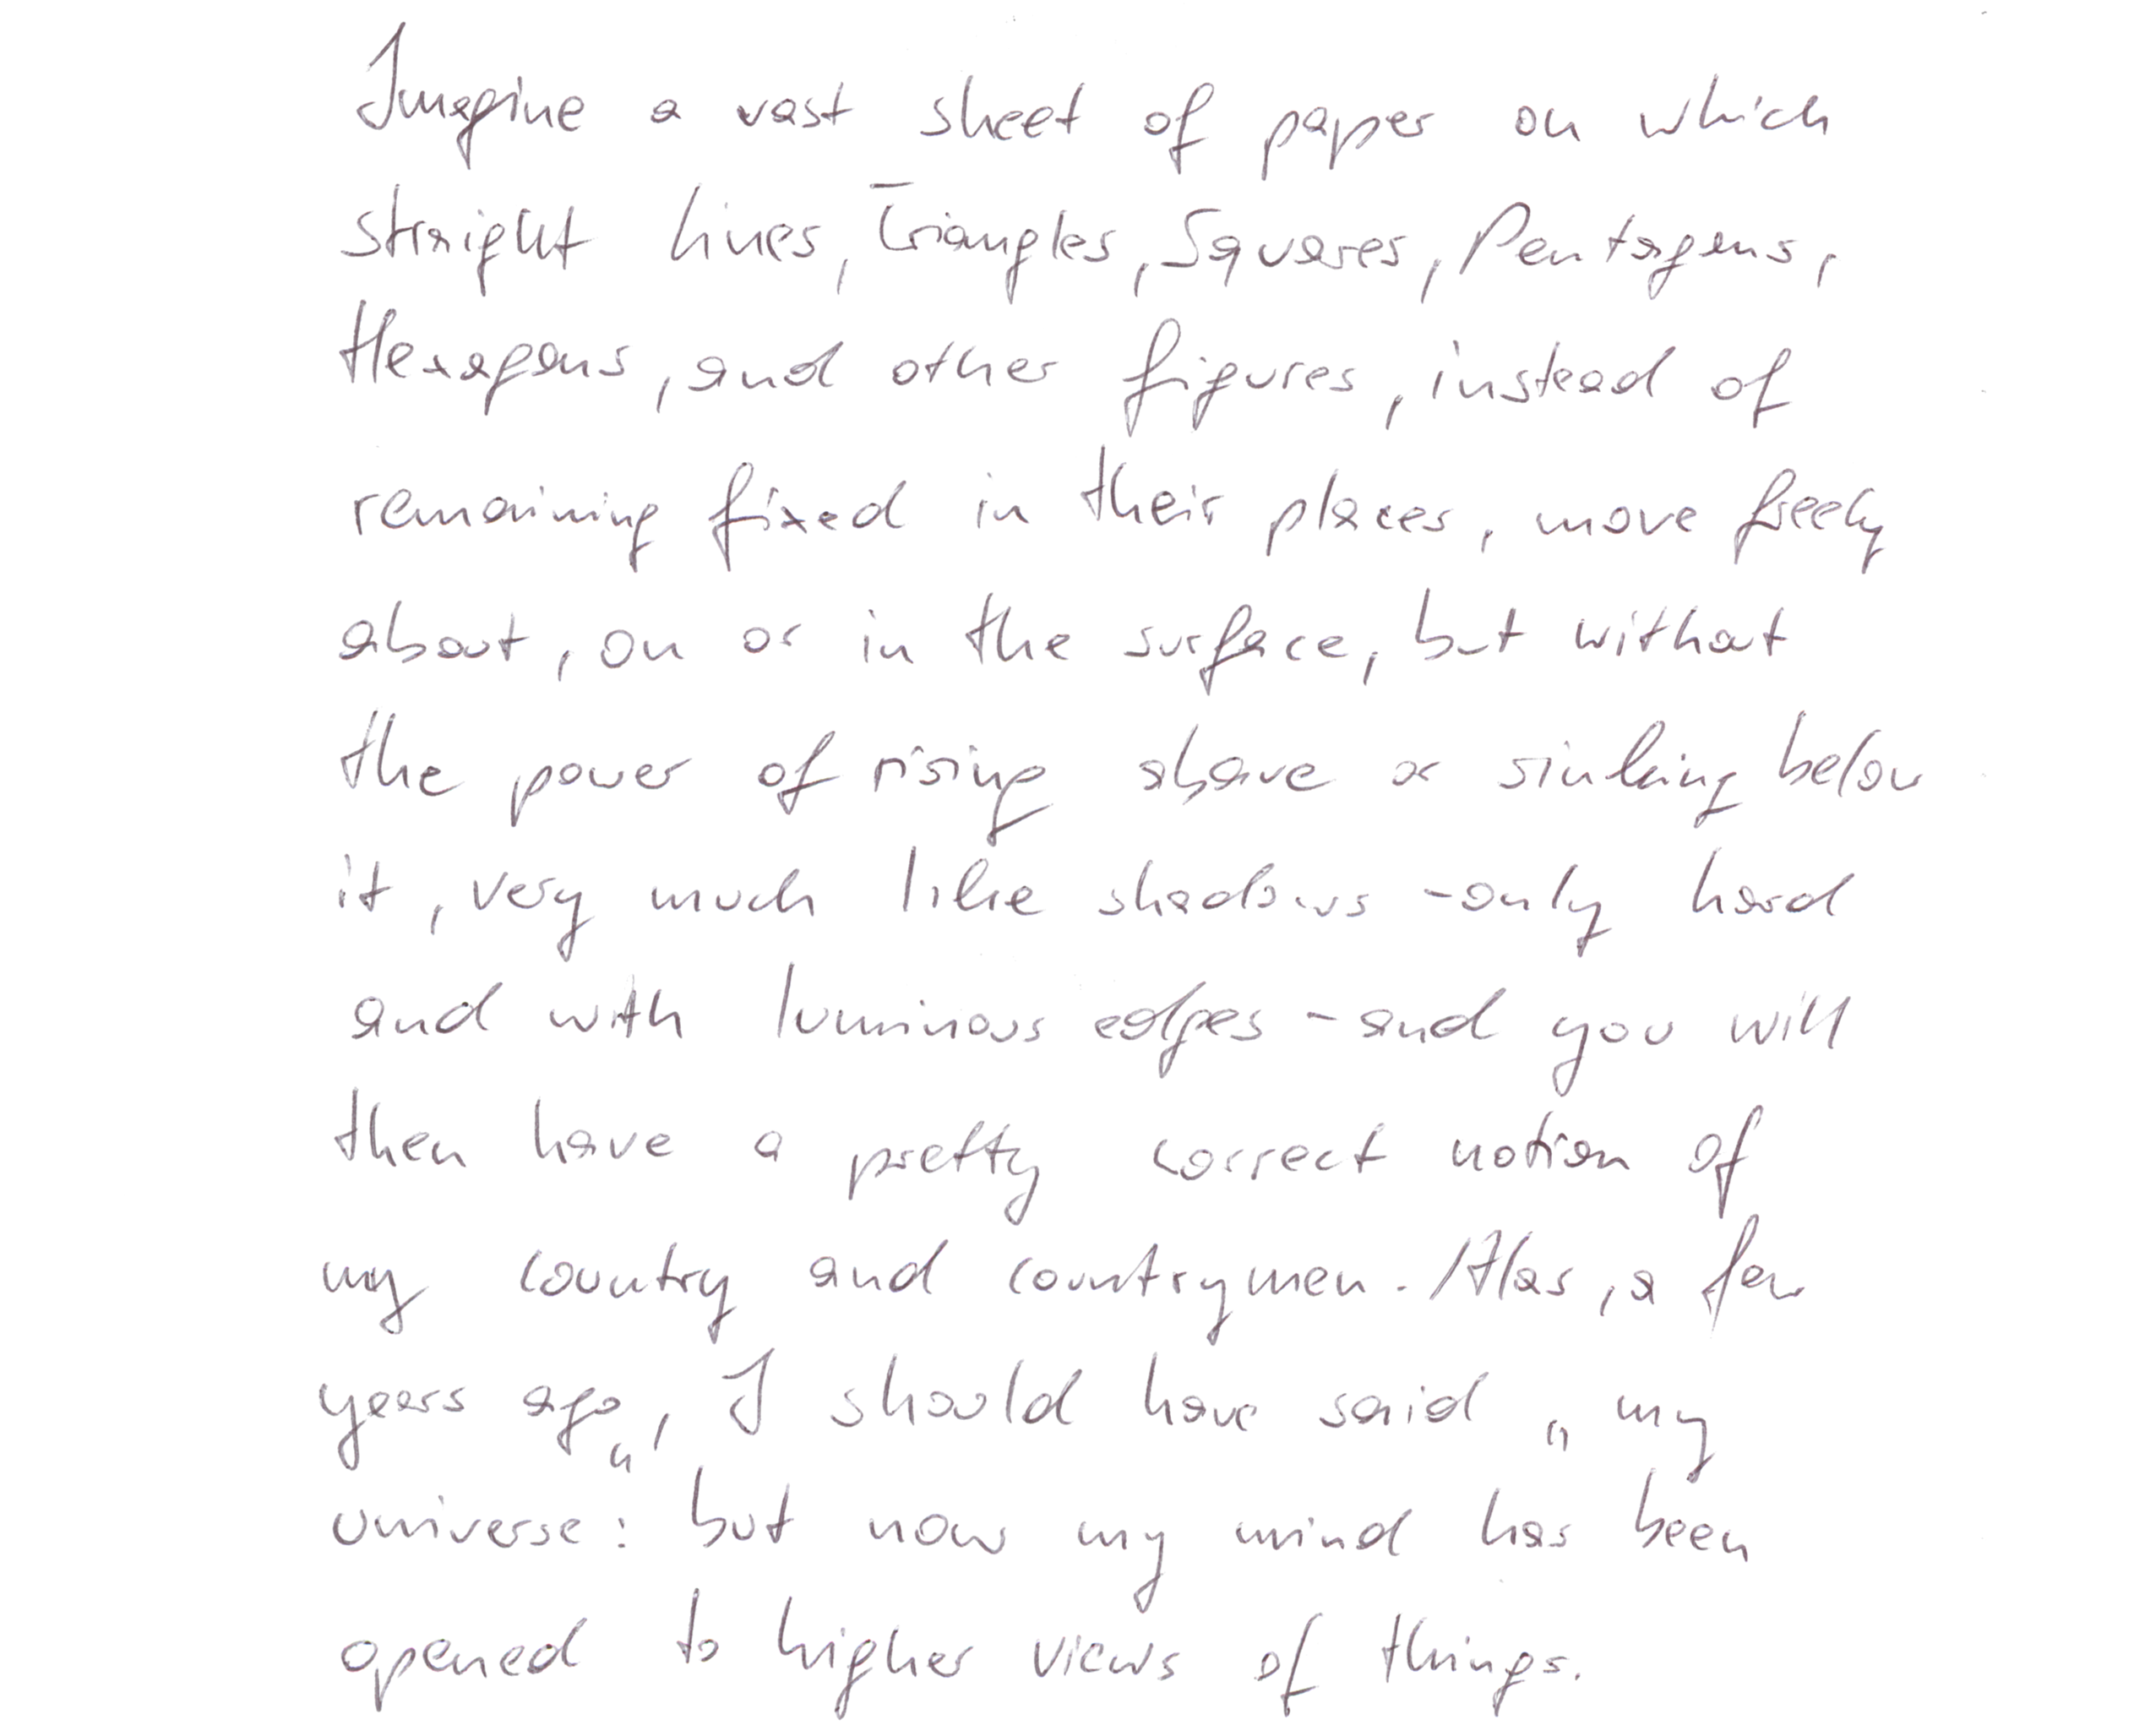 Imagine a vast sheet of paper on which
straight lines, Triangles, Squares, Pentagons,
Hexagons, and other figures, instead of
remaining fixed in their places, move freely
about, on or in the surface, but without
the power of rising above or sinking below
it, very much like shadows - only hard
and with luminous edges - and you will
then have a pretty correct notion of
my country and countrymen. Alas, a few
years ago, I should have said „my
universe“: but now my mind has been
opened to higher views of things.